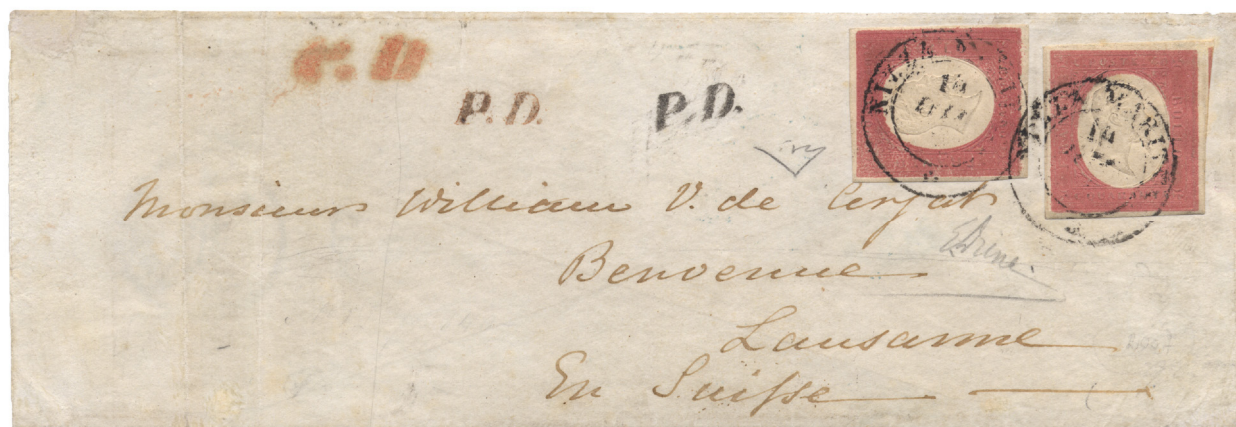 P.D.
P.D.
NIZZA MARIT
18
NIZZA MARIT
18
Monsieur William V. de Cerjat
Benvenue
Lausanne
En Suisse